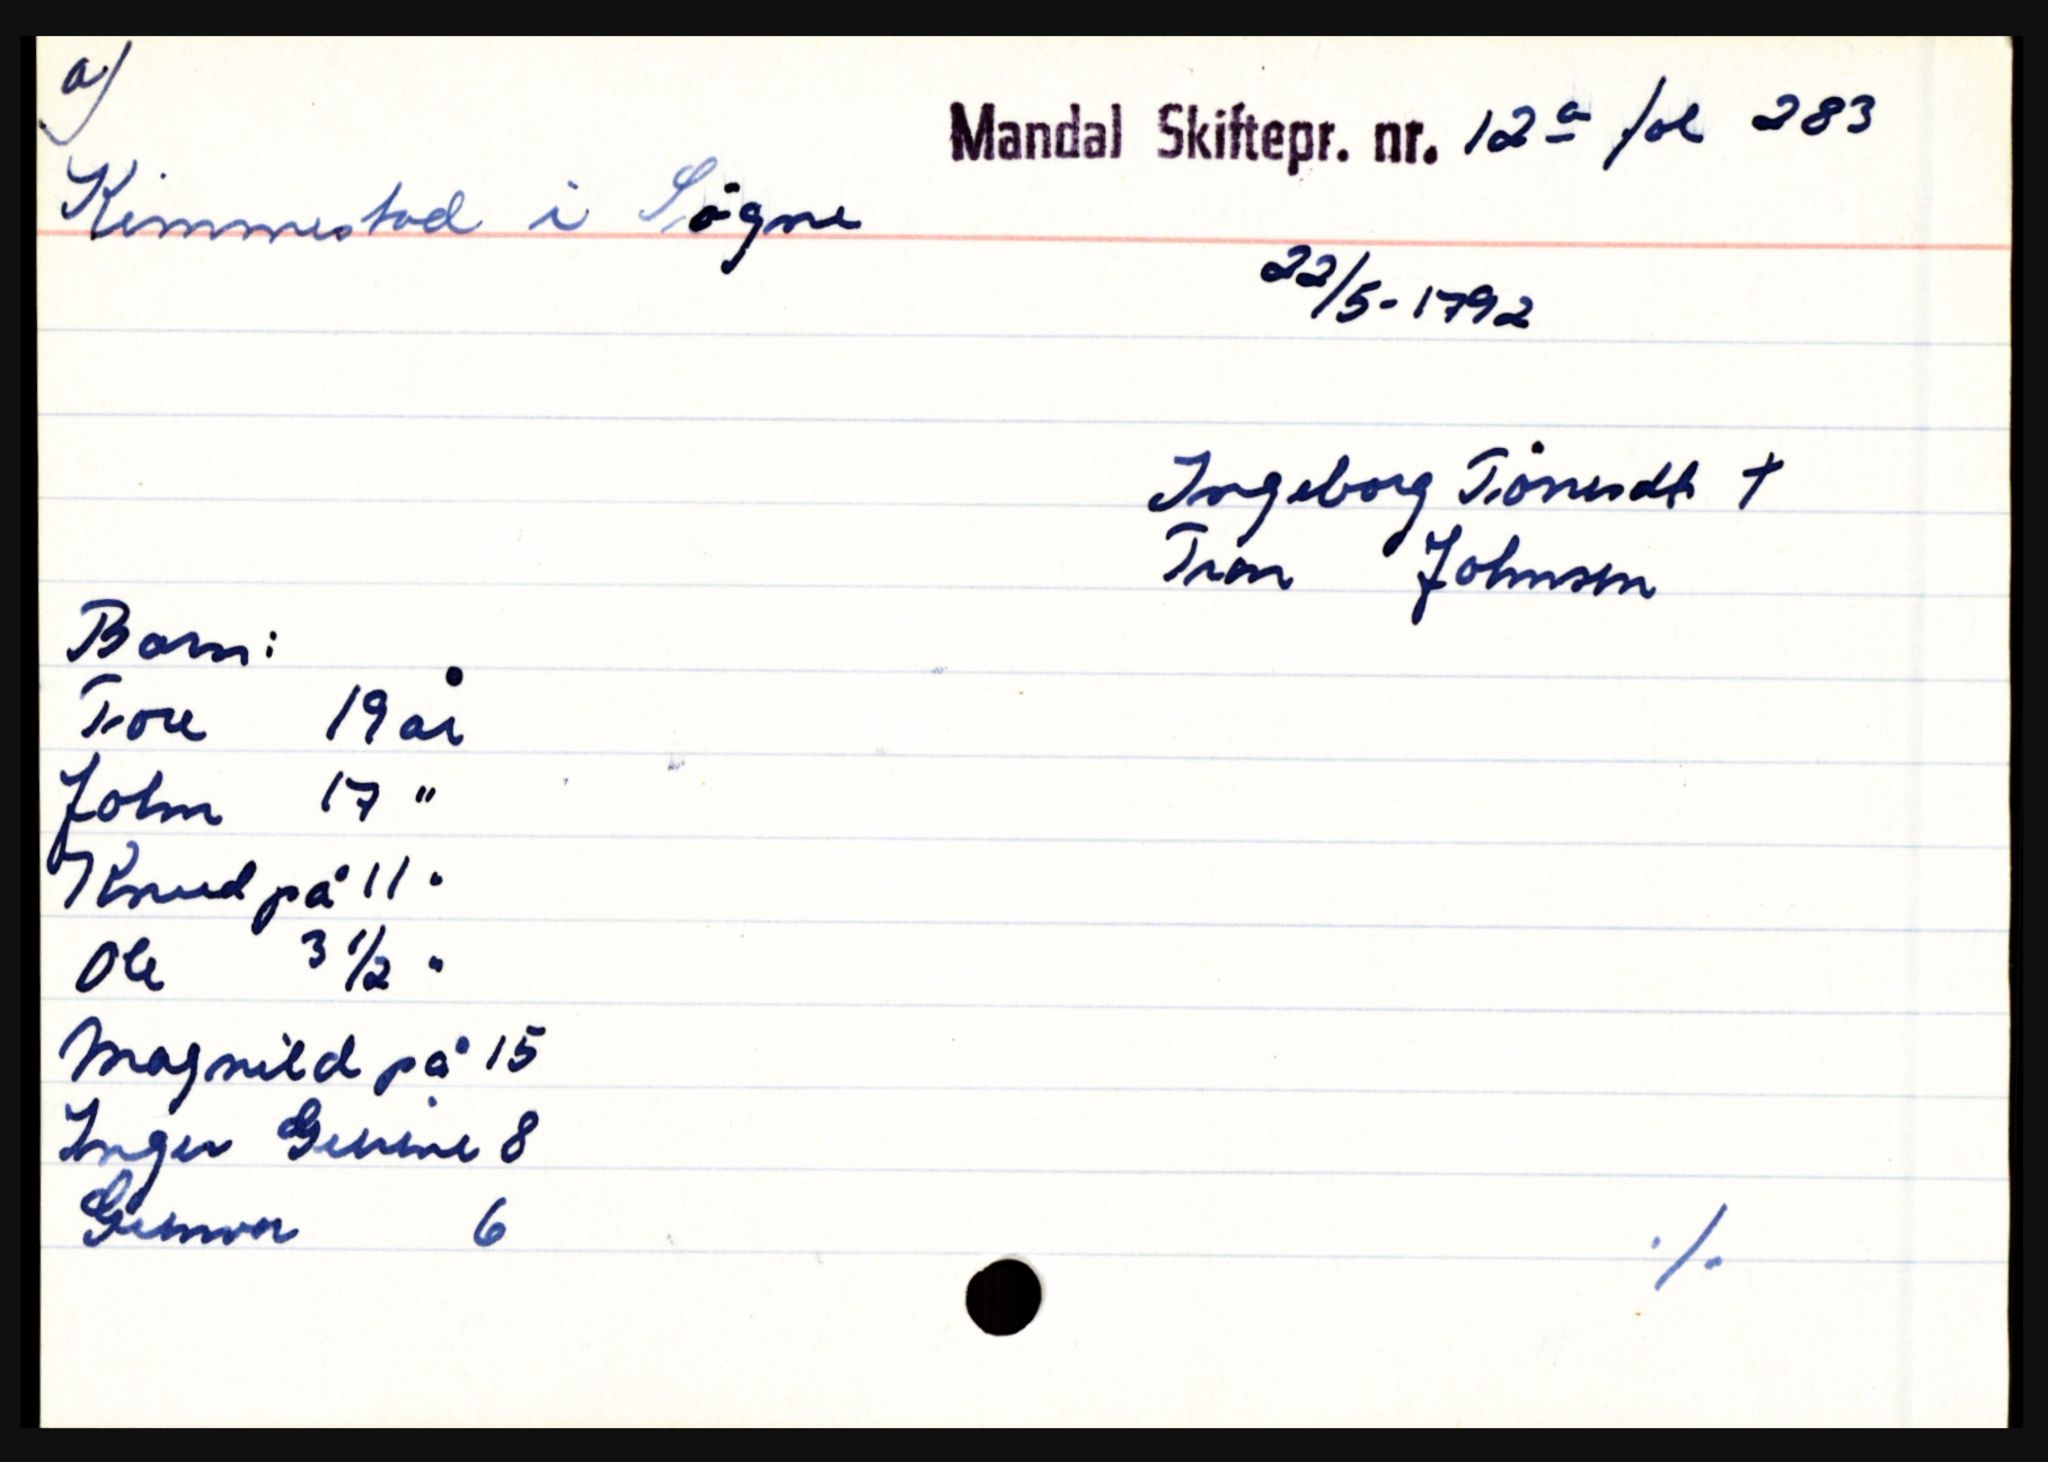 a)
Mandal Skiftepr. nr. 12a fol 283
Kimmestad i Søgne
22/5-1792
Ingeborg Tönesdt †
Tron Johnsen
Barn:
Tore 19 år
John 17 "
Knud på 11 "
Ole 3 1/2 "
Magnild på 15
Inger Gurine 8
Gunvor 6
./.